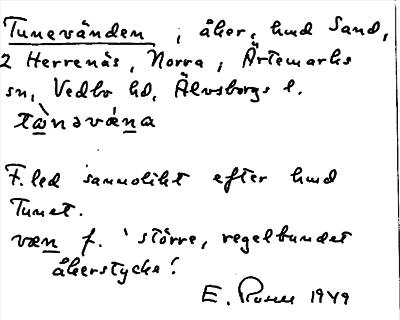 Tunevänden, åker, hmd Sand,
2 Herrenäs, Norra, Ärtemarks
sn, Vedbo hd, Älvsborgs l.
tùnəvæna
F.led sannolikt efter hmd
Tunet.
væn f. 'större, regelbundet
åkerstycke'.
E. 1949